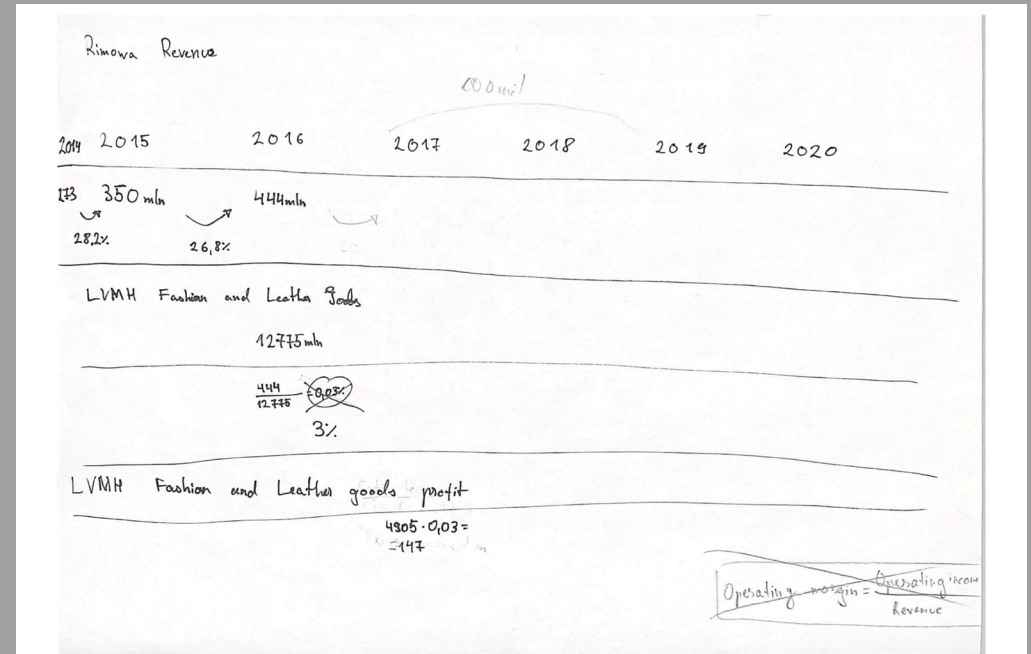 Rimowa Revenue
100mil
2014 2015 2016 2017 2018 2019 2020
173 350 mln 444mln
28,2% 26,8%
LVMH Fashion and Leathe goods
12775mln
444
12775
=0,03%
3%
LVMH Fashion and Leather goods profit
4905·0,03=
=147
Operating margin = Operating income
Revenue